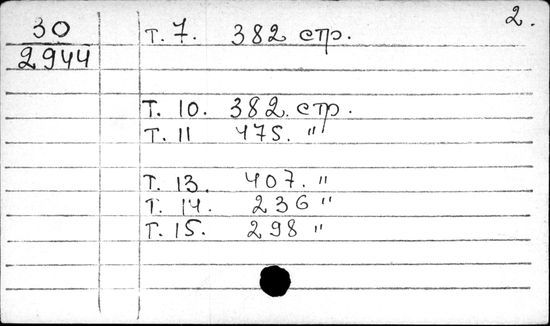 2.
30 т. 7. 382 стр.
2944
т. 10. 382. стр.
т. 11 475. "
т. 13. 407. "
т. 14. 236 "
т. 15. 298 "